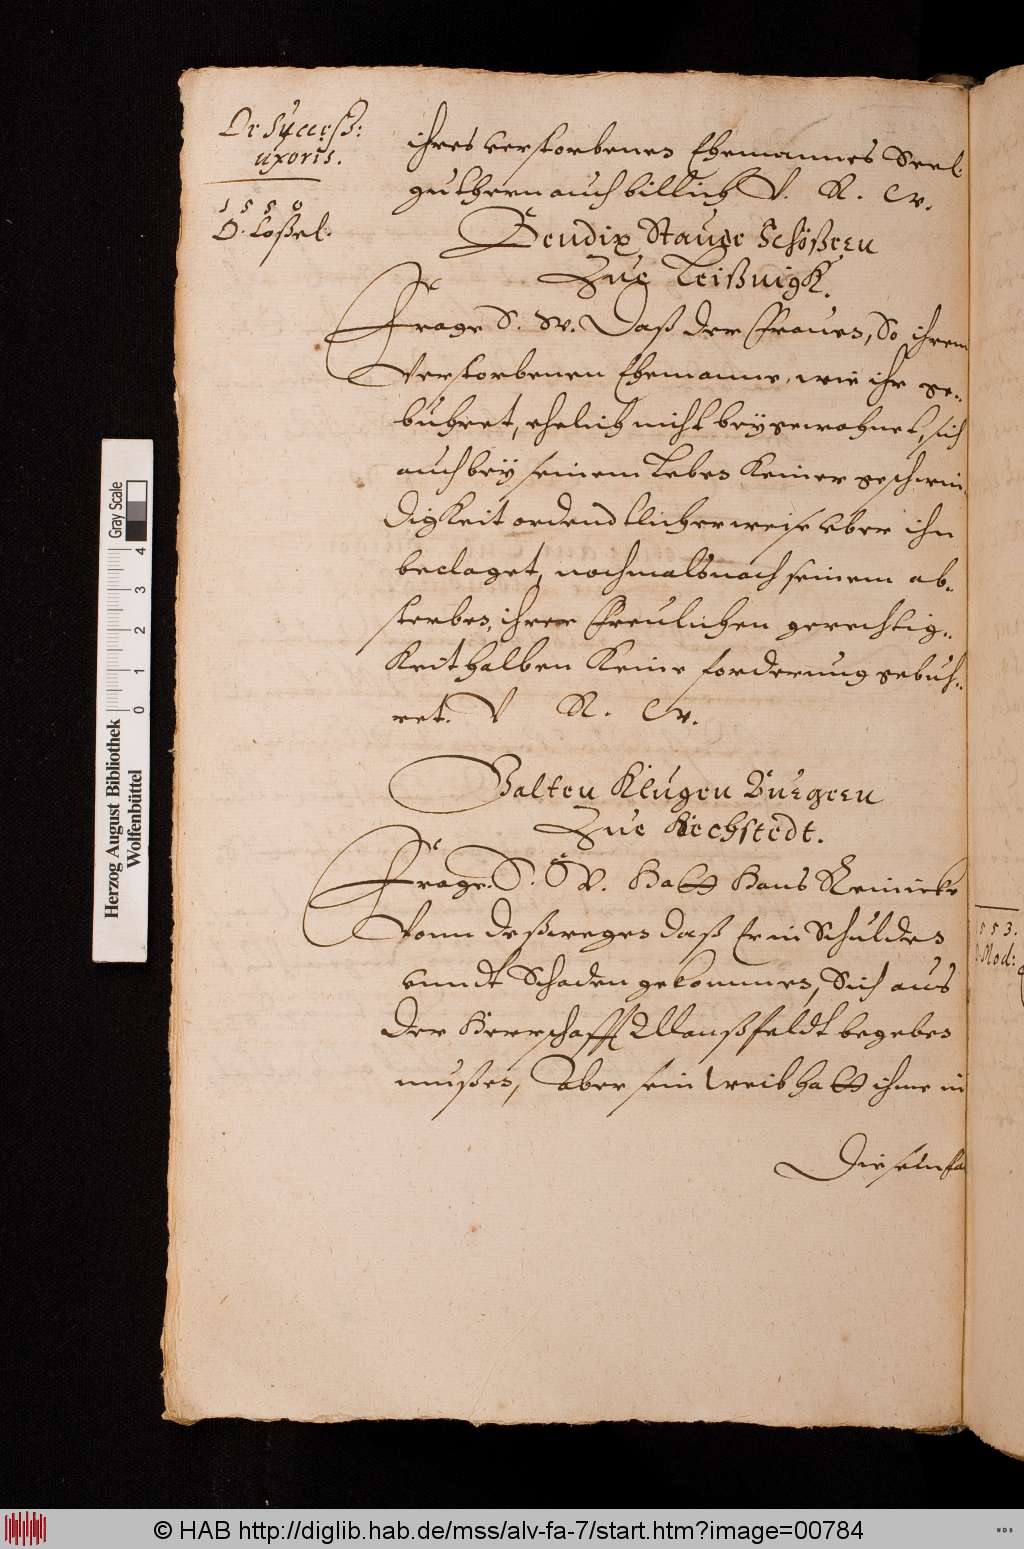 De Successi:
uxoris.
1550
D. Loßel.
ihres verstorbenen Ehemannes Seel.
guthern auch billich V. R. W.
Bendix Stauge Schößern
Zue Leißnigk.
Frage S. W. Daß der Frauen, So ihrem
verstorbenen Ehemanne, wie ihr ge-
buhret, ehelich nicht beygewohnet, sich
auch bey seinem Leben Keiner geschwin
digkeit ordendtlicher weise über ihn
beclaget, nochmals nach seinem ab-
sterben, ihrer Freulichen gerechtig-
Keit halben Keine forderung gebuh-
ret. V R. W.
Balten Klugen Burgern
Zue Hechstedt.
Frage. S. W. Hatt Hans Reinicke
Vonn deßwegen daß Er in Schulden
vundt Schaden gekommen, Sich aus
der Herrschafft Manßfeldt begeben
mußen, Aber sein weib hatt ihme in
Diesem fa
553.
D. Mod:
Herzog August Bibliothek
Wolfenbüttel
0 1 2 3 4
Gray Scale
© HAB http://diglib.hab.de/mss/alv-fa-7/start.htm?image=00784